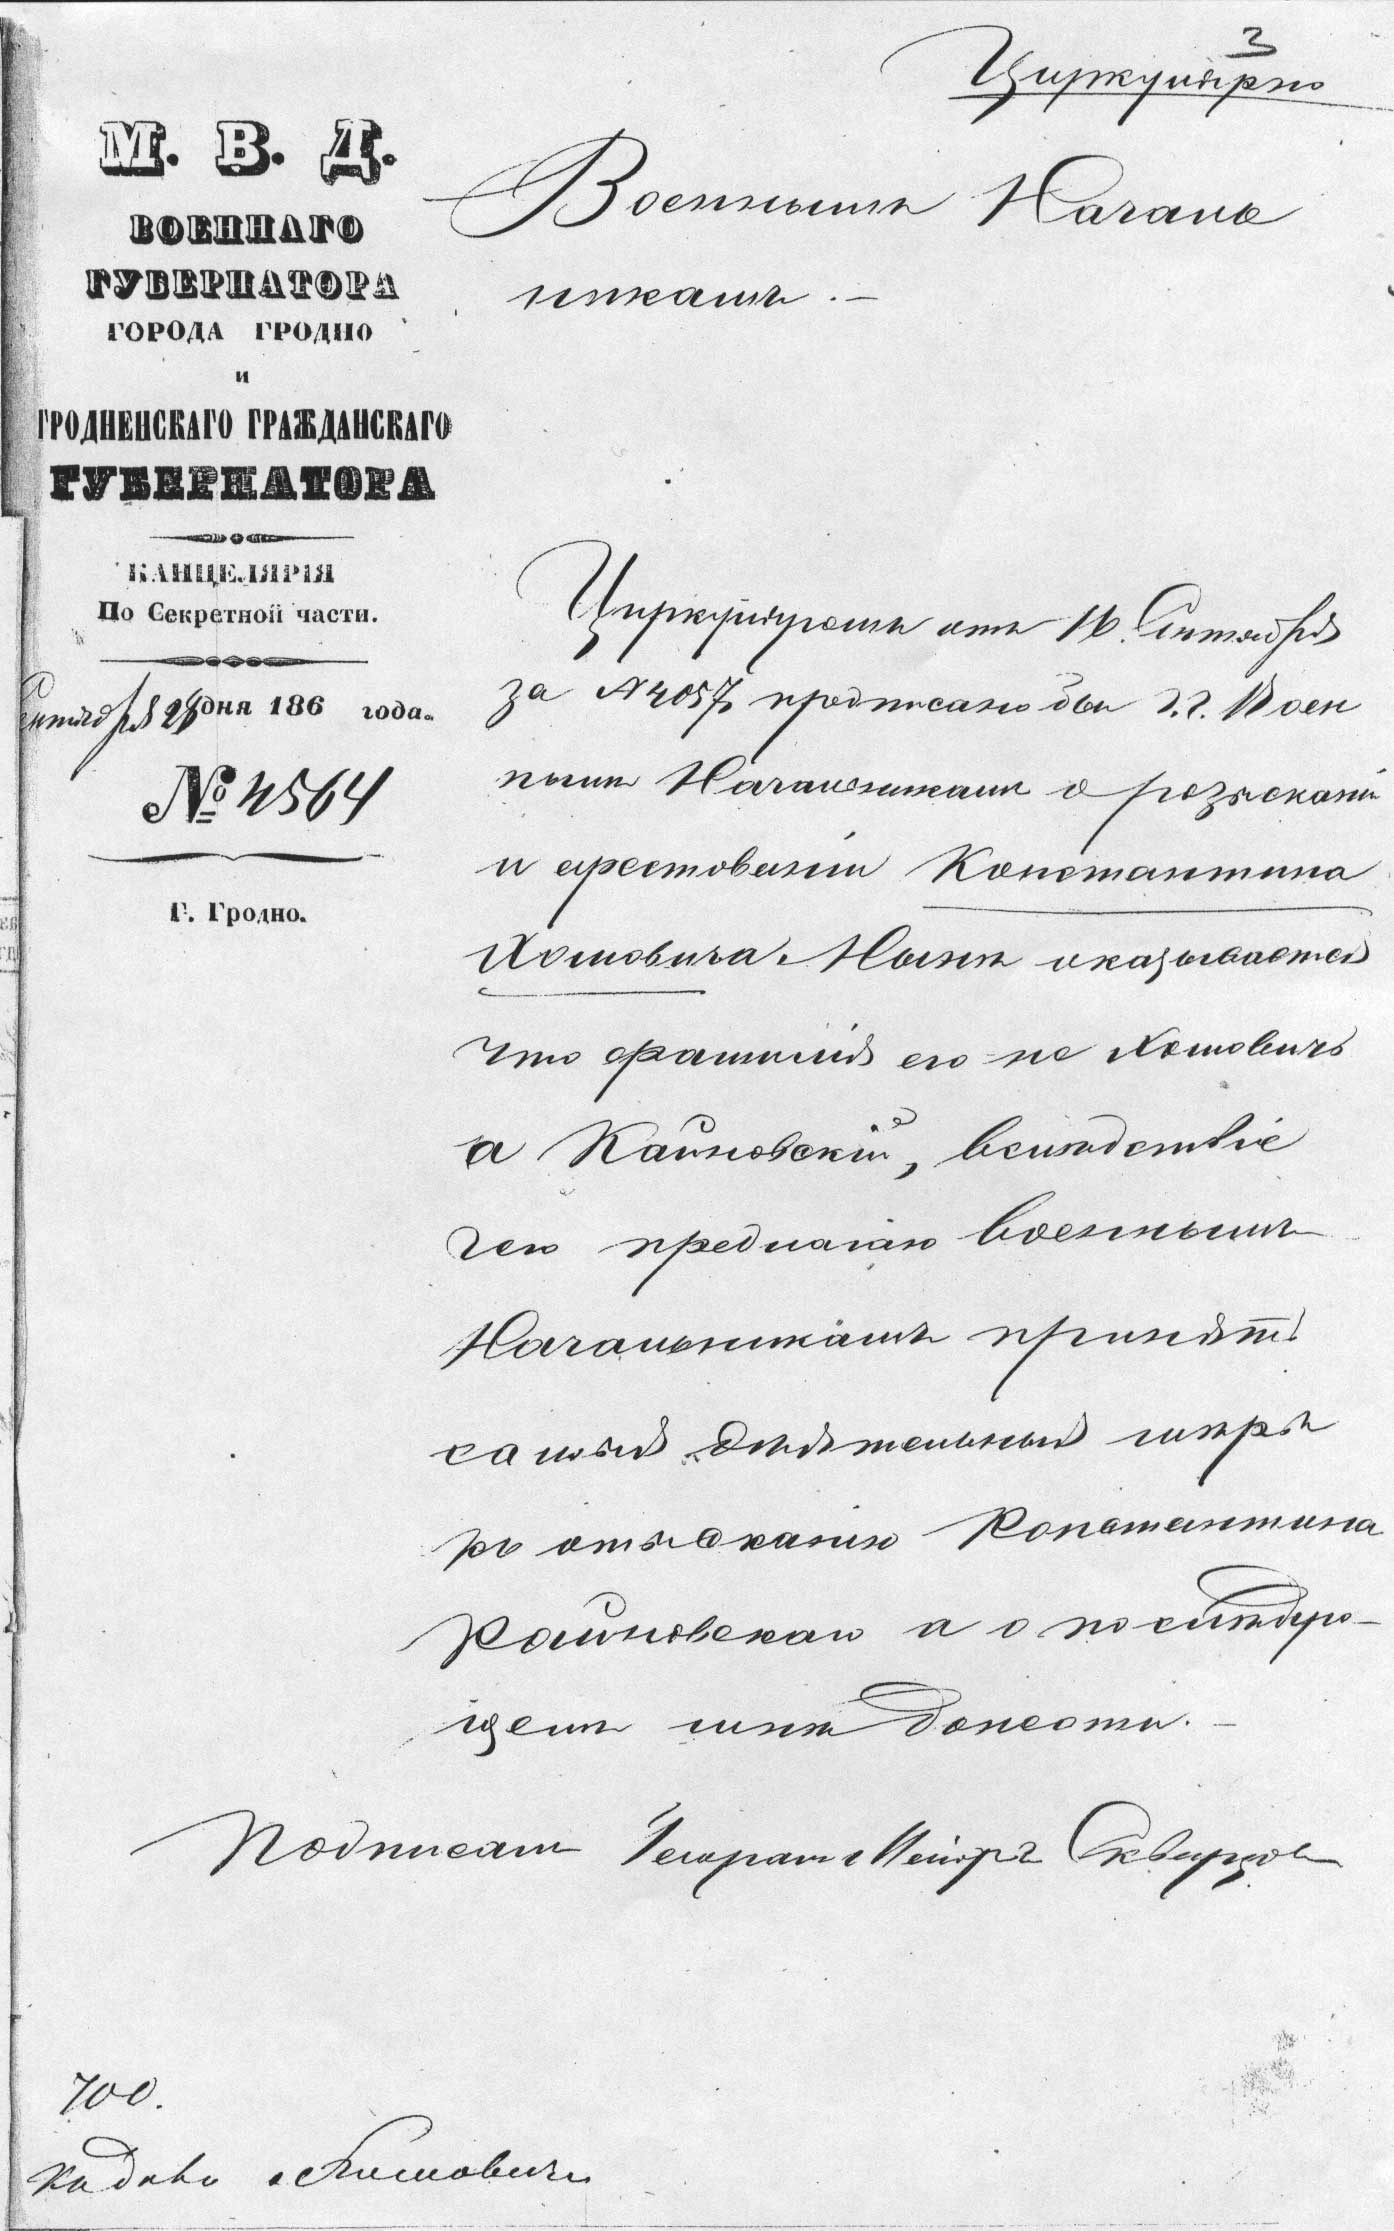 3
Циркулярно
М. В. Д.
ВОЕННАГО
ГУБЕРНАТОРА
ГОРОДА ГРОДНО
и
ГРОДНЕНСКАГО ГРАЖДАНСКАГО
ГУБЕРНАТОРА
КАНЦЕЛЯРІЯ
По Секретной части.
Сентября 28 дня 186 года.
№ 4564
Г. Гродно.
Военнымъ Началь
никамъ. —
Циркуляромъ отъ 16 Сентября
за № 4057, предписано было г.г. Воен
нымъ Начальникамъ о розысканіи
и арестованіи Константина
Хомовича. Нынѣ оказывается
что фамилія его не Хомовичъ
а Калиновскій, вслѣдствіе
чего предлагаю Военнымъ
Начальникамъ принять
самыя дѣятельныя мѣры
къ отысканію Константина
Калиновскаго и о послѣдую-
щемъ мнѣ донести. —
Подписалъ Генералъ Маіоръ Скворцовъ
700.
Къ дѣлу о Хомовичѣ